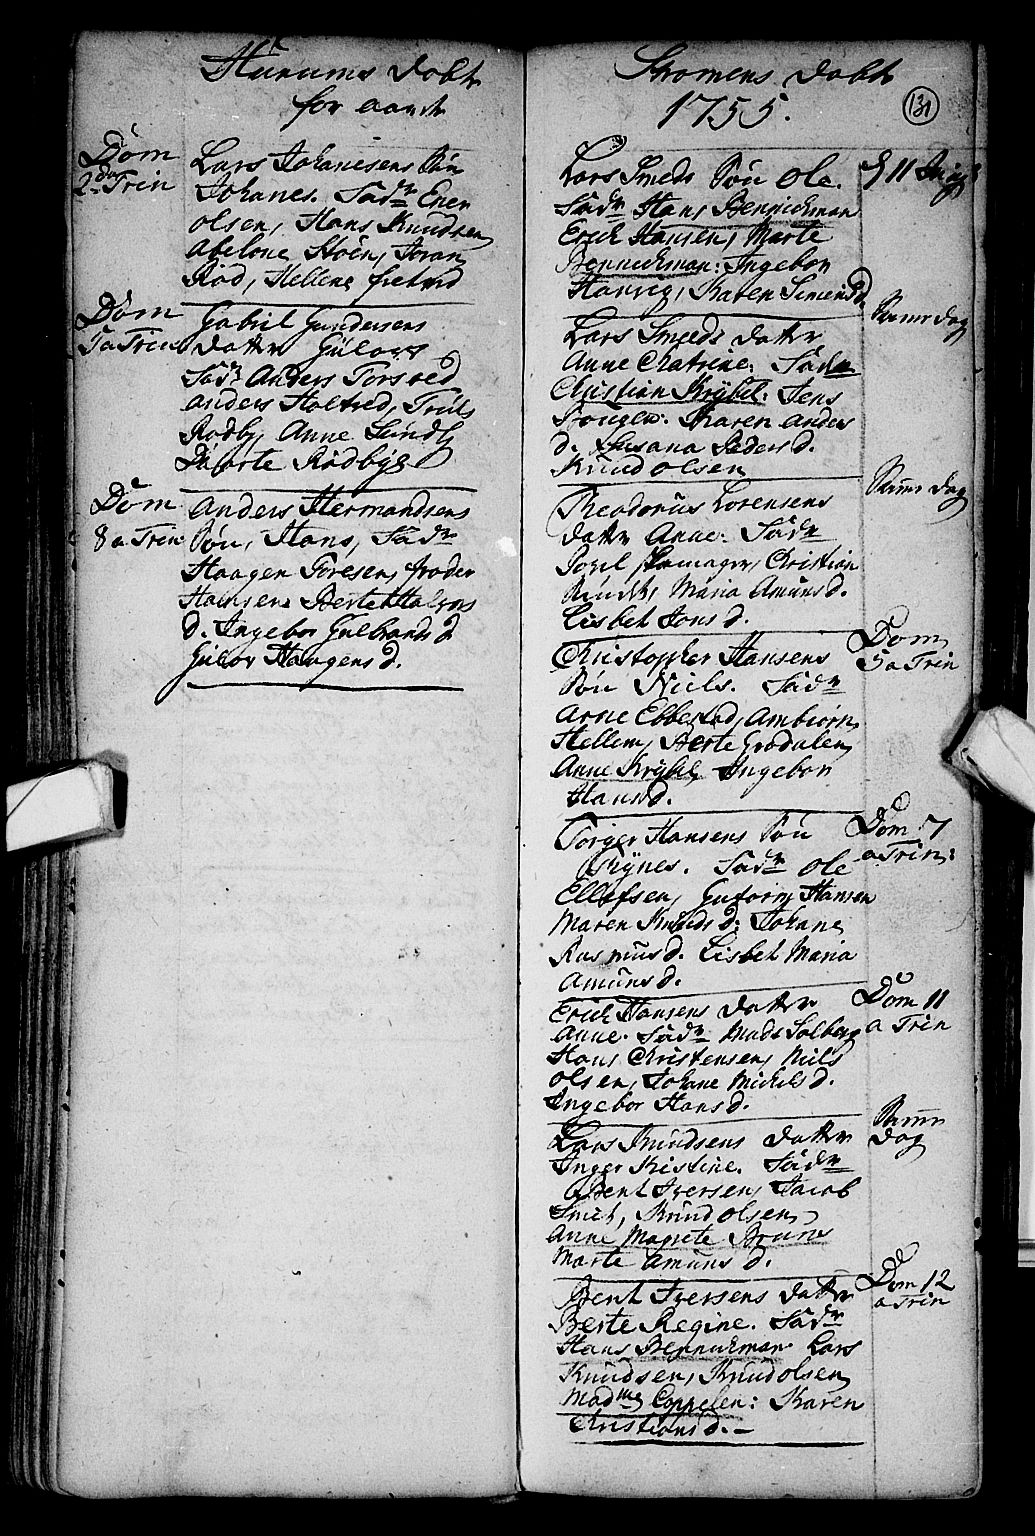 Hurums Døbte
for aaret
Dom
2da Trin
Lars Johanesens Søn
Johanes. Fadr Ener
olsen, Hans Knudsen,
Abelone Støen, Joran
Rød, Hellene
Dom
5 a Trin
Gabril Gundersens
datter Gulovs
Fadr Anders Torsrød
anders Holtrød, Truls
Rødby, Anne Sundby
Dorte Rødbye
Dom
8 a Trin
Anders Hermandsens
Søn, Hans, Fadr
Haagen Toresen, froder
Hansen. Berte Halvors
d. Ingebor Gulbrands d
Gulov Haagens d.
Strømens Døbte
1755.
131
Lars Smeds Søn Ole.
Fadr Hans Bennickman
Erich Hansen, Marte
Bennickman: Ingebor
Hansig, Karen Simens d.
11
Lars Smeds datter
Anne Chatrine: Fadr
Christian Krÿbel: Jens
Karen anders
d. Susana Peders d.
Knud olsen
Samme dag
Theodorus Lorensens
datter Anne: Fadr
Christian
Maria Amunds d.
Lisbet Jons d.
Samme dag
Christopher Hansens
Søn Niels. Fadr
Arne Ebbestad, Ambiørn
Hellem, Berte Grødalen,
Anne Krÿbel, Ingebor
Hansd.
Dom
5 a Trin
Torger Hansens Søn
Fadr Ole
Ellefsen, Gutorm Hansen
Maren Knuds d: Johane
Rasmus d. Lisbet Maria
Amunds d.
Dom 7
a Trin:
Erich Hansens datter
Anne. Fadr Mads Solberg
Hans Christensen, Niels
olsen, Johane Michels d.
Ingebor Hans d.
Dom 11
a Trin
Lars Knudsens datter
Inger Kistine. Fadr
Bent Iversen, Jacob
Smed, Knud olsen,
Anne Magrete Bruns
Marte Amunds d.
Samme
dag
Bent Iversens datter
Berte Regine. Fadr
Hans Bennickman Lars
Knudsen, Knud olsen,
Madme Coppelen: Karen
Christians d.—
Dom 12
a Trin